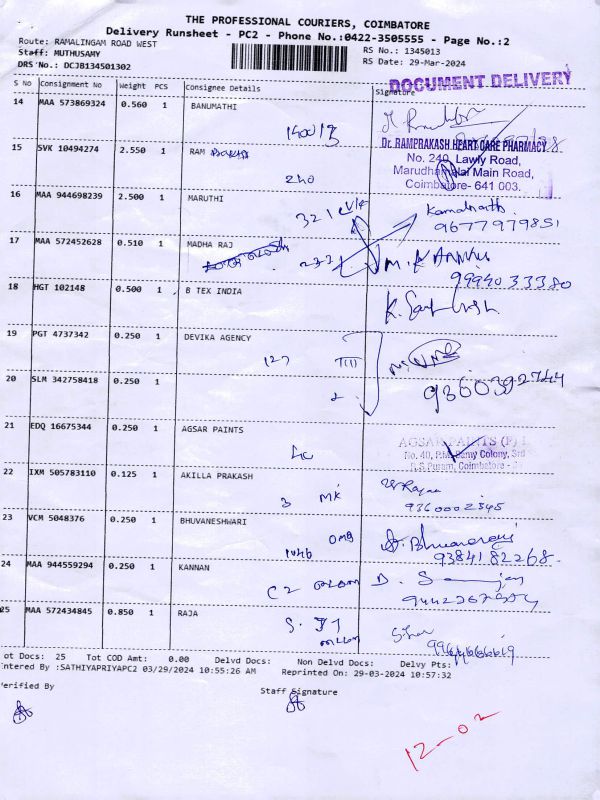 THE PROFESSIONAL COURIERS, COIMBATORE
Delivery Runsheet - PC2 - Phone No.:0422-3505555 - Page No.:2
Route: RAMALINGAM ROAD WEST
RS No.: 1345013
Staff: MUTHUSAMY
RS Date: 29-Mar-2024
DRS No.: DCJB134501302
DOCUMENT DELIVERY
S No Consignment No Weight PCS Consignee Details Signature
14 MAA 573869324 0.560 1 BANUMATHI
15 SVK 10494274 2.550 1 RAM
240
Dr. RAMPRAKASH HEART CARE PHARMACY
No. 240, Lawly Road,
Marudhamalai Main Road,
Coimbatore- 641 003.
16 MAA 944698239 2.500 1 MARUTHI
321
Kamalnath
9677979851
17 MAA 572452628 0.510 1 MADHA RAJ
233
M. KANNAN
9994033380
18 HGT 102148 0.500 1 B TEX INDIA
19 PGT 4737342 0.250 1 DEVIKA AGENCY
127
20 SLM 342758418 0.250 1
2
9360392744
21 EDQ 16675344 0.250 1 AGSAR PAINTS
AGSAR PAINTS (P)
No. 40, P.M. Samy Colony, 3rd
R.S Puram, Coimbatore -
22 IXM 505783110 0.125 1 AKILLA PRAKASH
3 MK
9360002345
23 VCM 5048376 0.250 1 BHUVANESHWARI
9384182268
24 MAA 944559294 0.250 1 KANNAN
C2
25 MAA 572434845 0.850 1 RAJA
ot Docs: 25 Tot COD Amt: 0.00 Delvd Docs: Non Delvd Docs: Delvy Pts:
ntered By :SATHIYAPRIYAPC2 03/29/2024 10:55:26 AM Reprinted On: 29-03-2024 10:57:32
erified By
Staff Signature
12-02